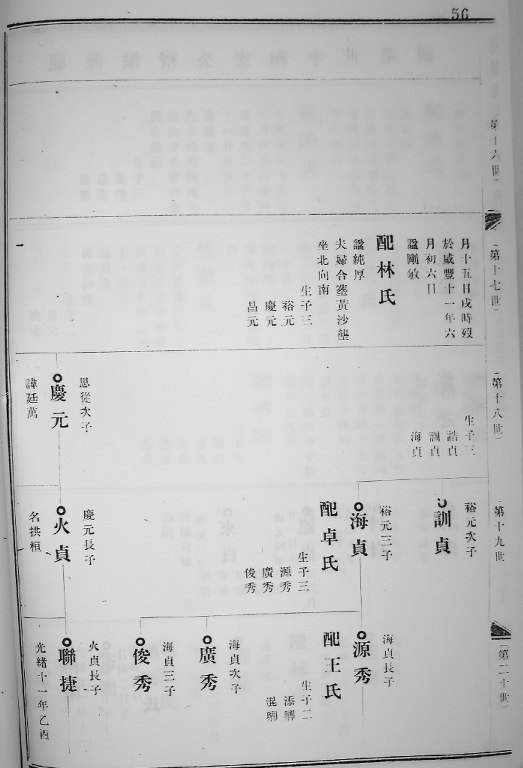 56
第十六世
第十七世
月十五日戌時歿
於咸豐十一年六
月初六日
諡剛敏
配林氏
諡純厚
夫婦合塟黃沙壠
坐北向南
生子三
裕元
慶元
昌元
第十八世
生子三
誥貞
訓貞
海貞
思從次子
慶元
諱廷萬
第十九世
裕元次子
訓貞
裕元三子
海貞
配卓氏
生子三
源秀
廣秀
俊秀
慶元長子
火貞
名拱桓
第二十世
海貞長子
源秀
配王氏
生子二
海貞次子
廣秀
海貞三子
俊秀
火貞長子
聯捷
光緒十一年乙酉